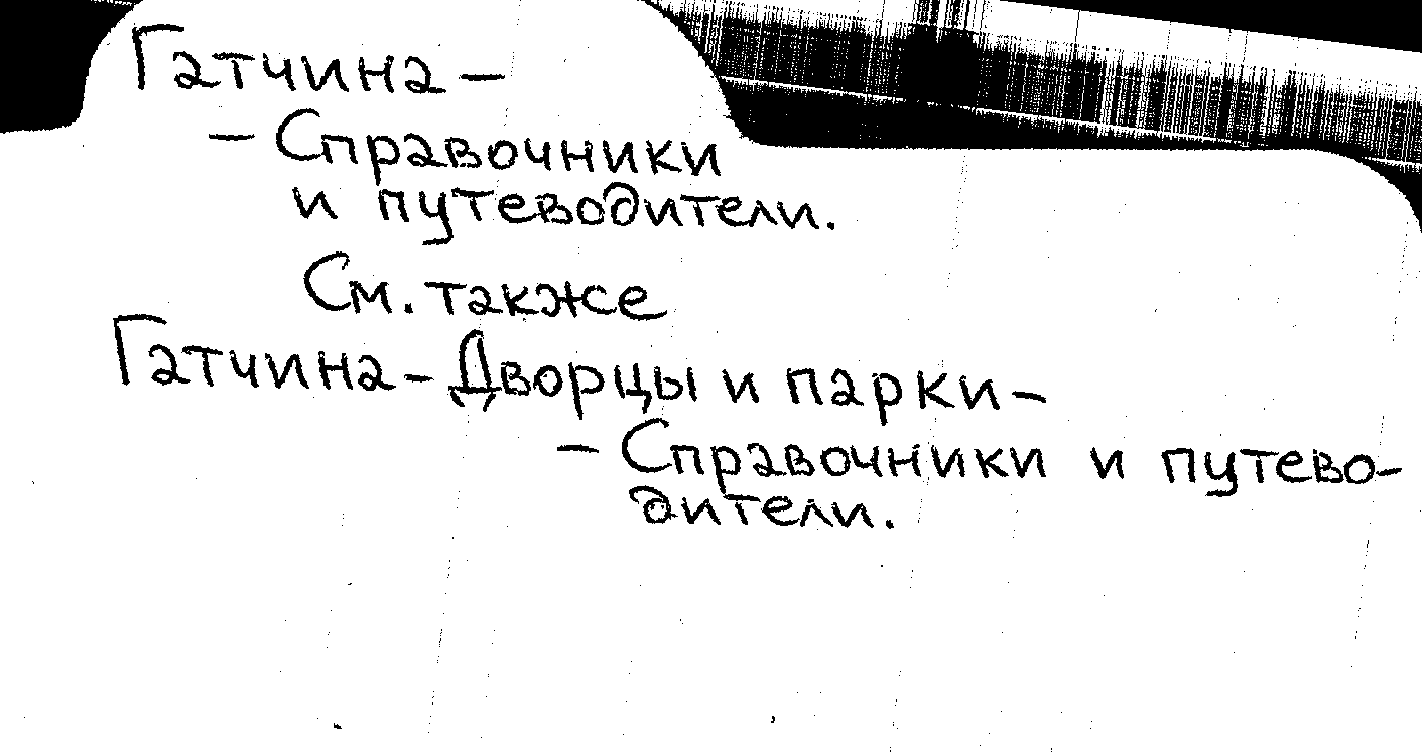 Гатчина –
– Справочники
и путеводители.
См. также
Гатчина – Дворцы и парки –
– Справочники и путево-
дители.